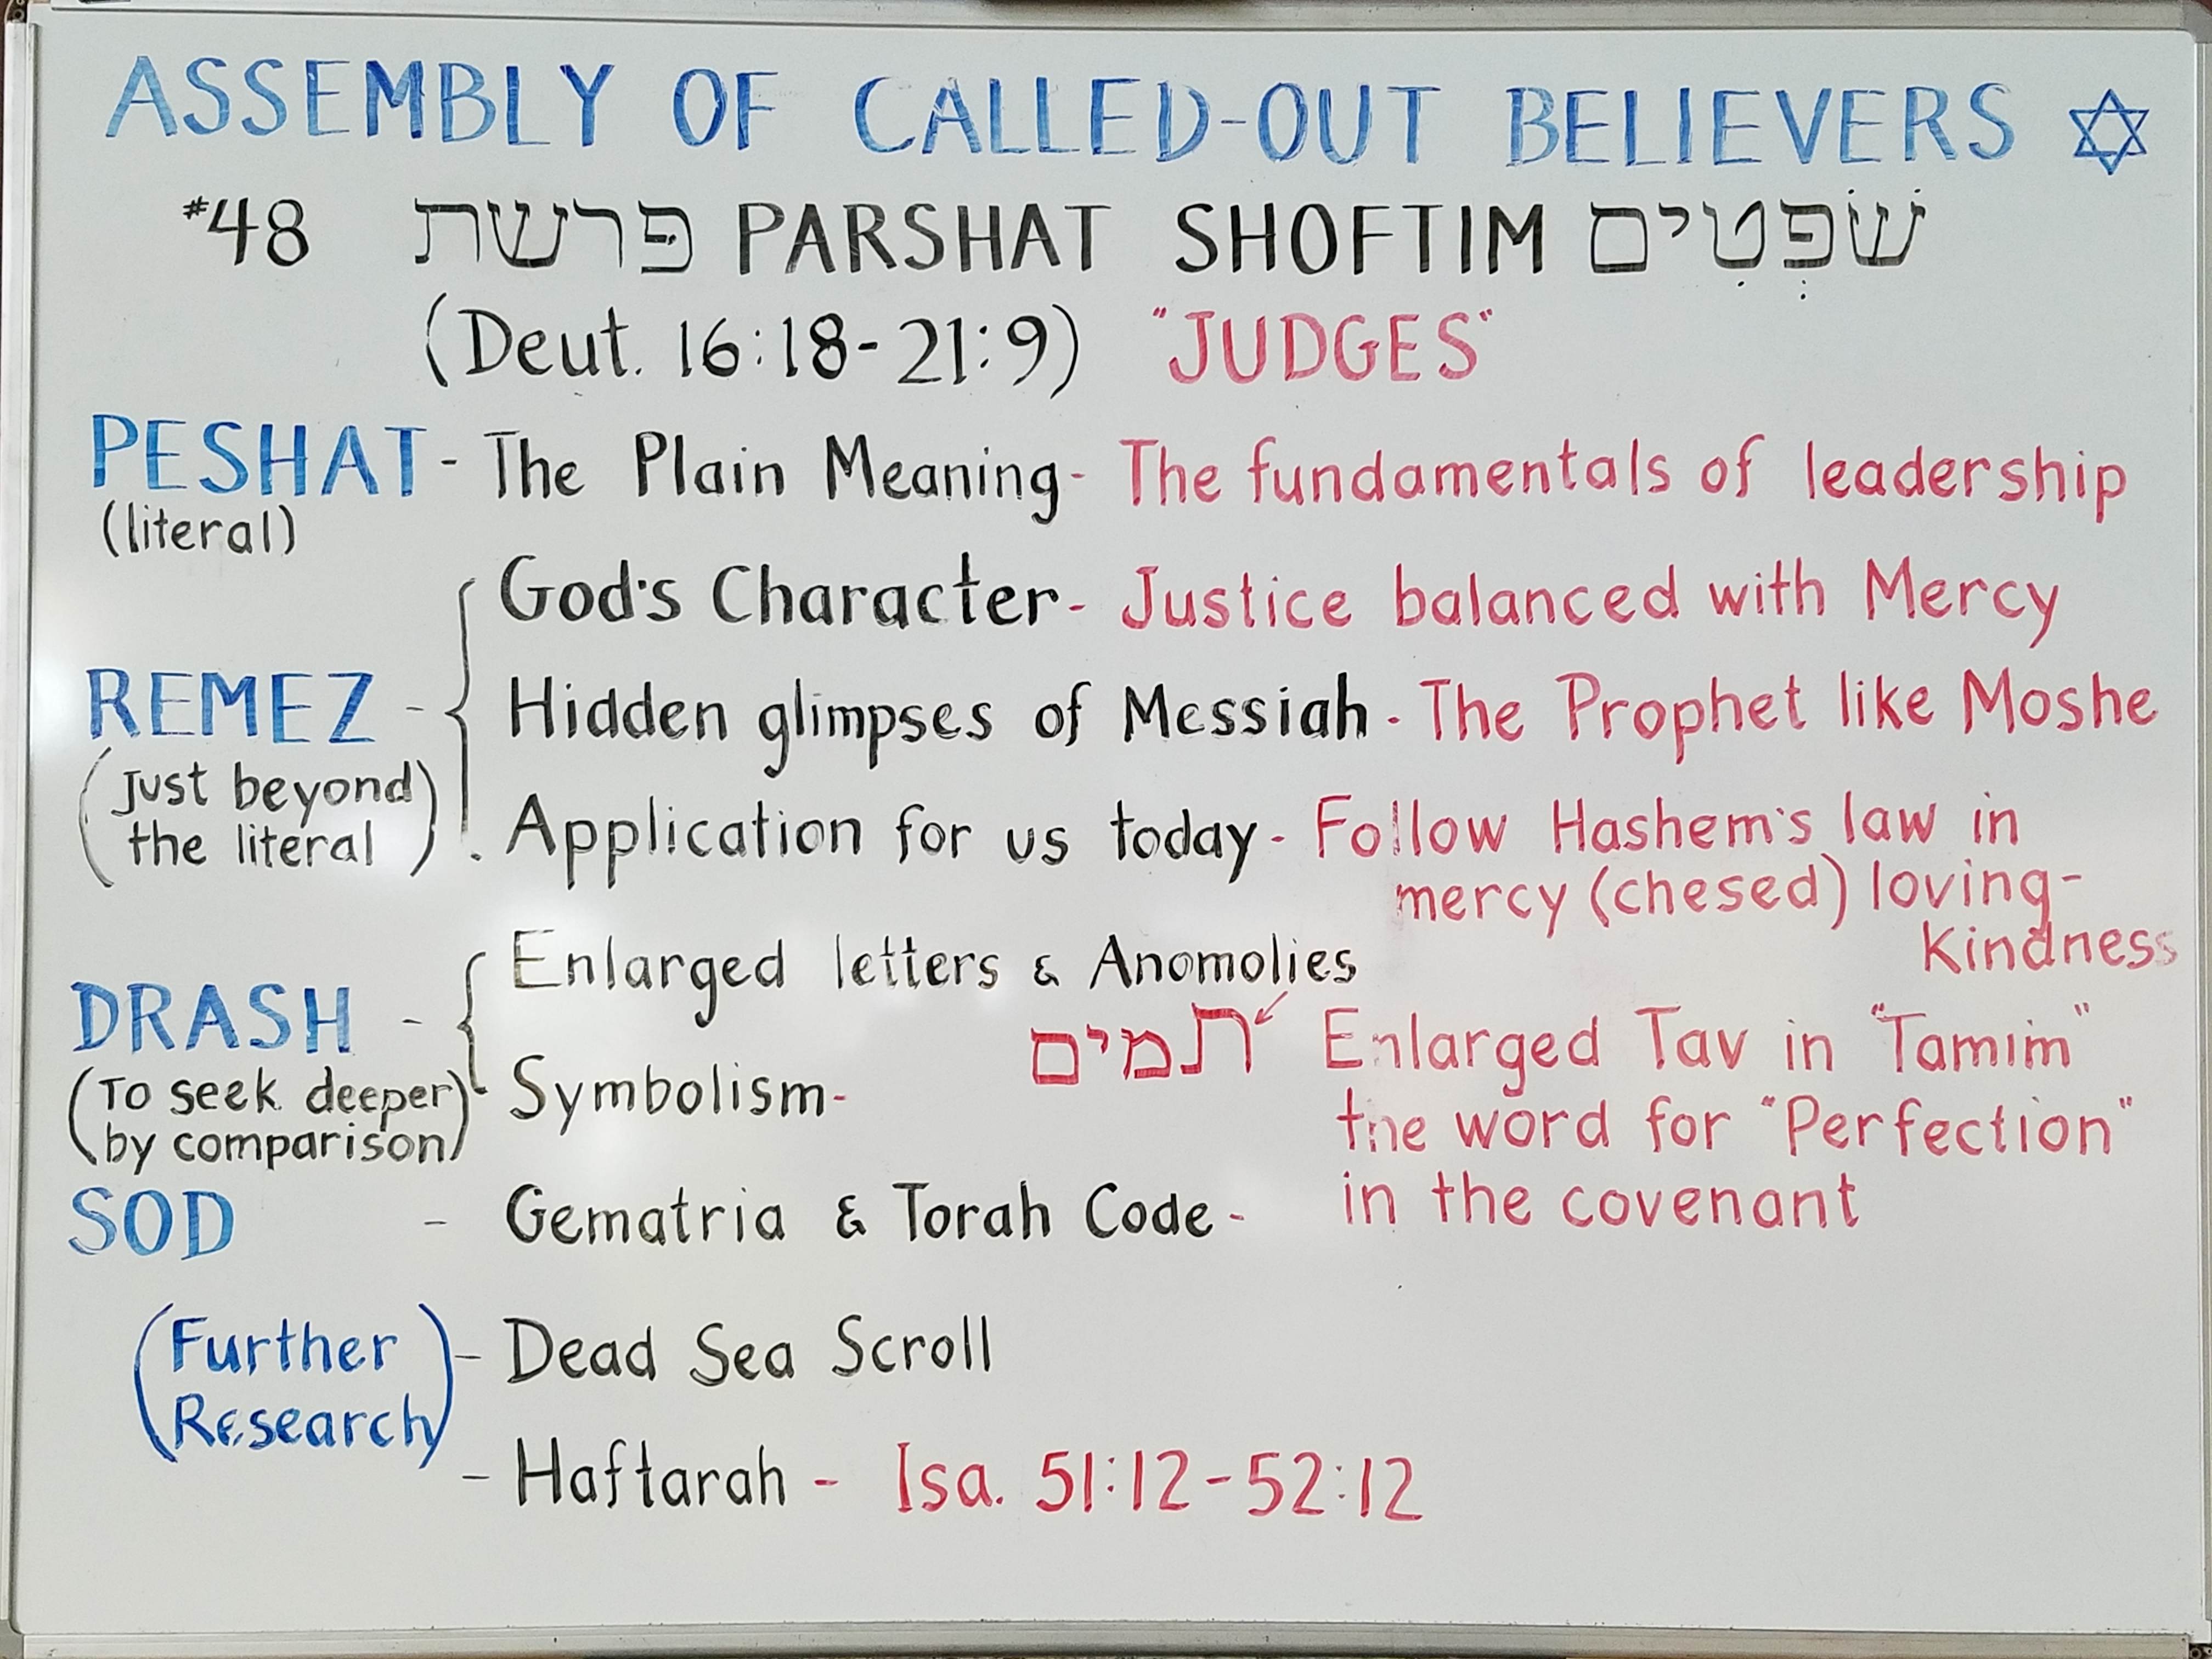 ASSEMBLY OF CALLED-OUT BELIEVERS ✡
#48 פרשת PARSHAT SHOFTIM שֹׁפְטִים
(Deut. 16:18-21:9) "JUDGES"
PESHAT - The Plain Meaning - The fundamentals of leadership
(literal)
God's Character - Justice balanced with Mercy
REMEZ - Hidden glimpses of Messiah - The Prophet like Moshe
(Just beyond
the literal) . Application for us today - Follow Hashem's law in
mercy (chesed) loving-
Kindness
Enlarged letters & Anomolies
DRASH - תמים Enlarged Tav in "Tamim"
(To seek deeper
by comparison) Symbolism- the word for "Perfection"
SOD - Gematria & Torah Code - in the covenant
(Further
Research) - Dead Sea Scroll
- Haftarah - Isa. 51:12-52:12